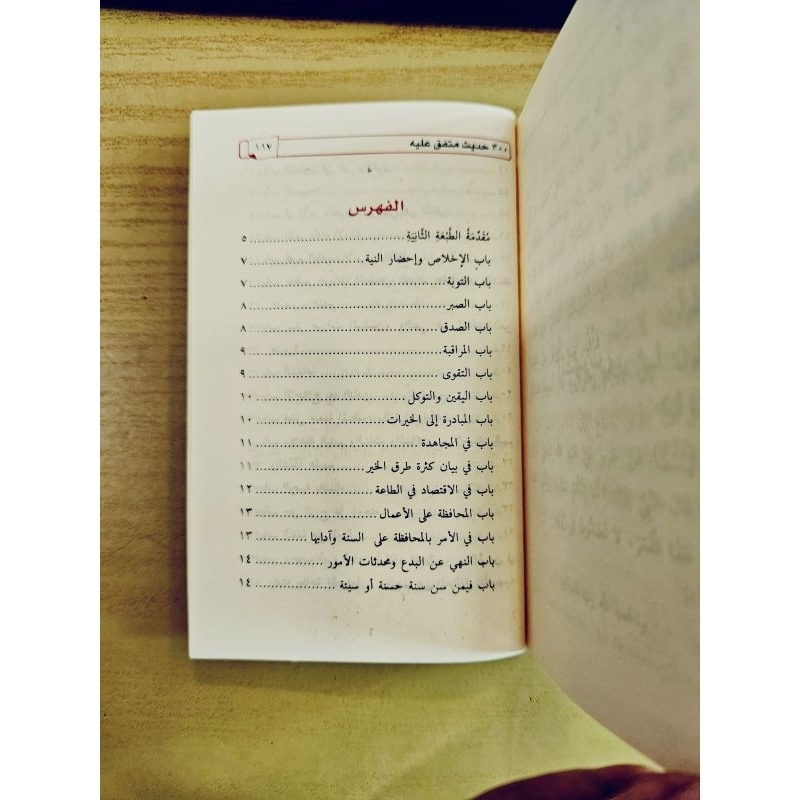 ٣٠٠ حديث متفق عليه ١١٧
الفهرس
مُقَدِّمَةُ الطَّبْعَةِ الثَّانِيَةِ ........................................ ٥
باب الإخلاص وإحضار النية ........................ ٧
باب التوبة ........................................ ٧
باب الصبر ........................................ ٨
باب الصدق ........................................ ٨
باب المراقبة ........................................ ٩
باب التقوى ........................................ ٩
باب اليقين والتوكل ................................ ١٠
باب المبادرة إلى الخيرات ............................ ١٠
باب في المجاهدة .................................... ١١
باب في بيان كثرة طرق الخير ........................ ١١
باب في الاقتصاد في الطاعة .......................... ١٢
باب المحافظة على الأعمال .......................... ١٣
باب في الأمر بالمحافظة على السنة وآدابها ............ ١٣
باب النهي عن البدع ومحدثات الأمور ................ ١٤
باب فيمن سن سنة حسنة أو سيئة .................... ١٤